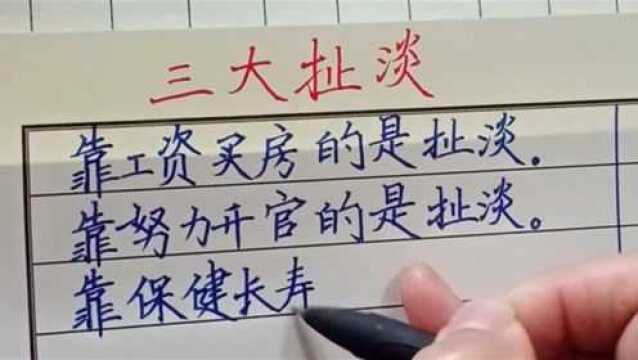 三大扯淡
靠工资买房的是扯淡。
靠努力开官的是扯淡。
靠保健长寿